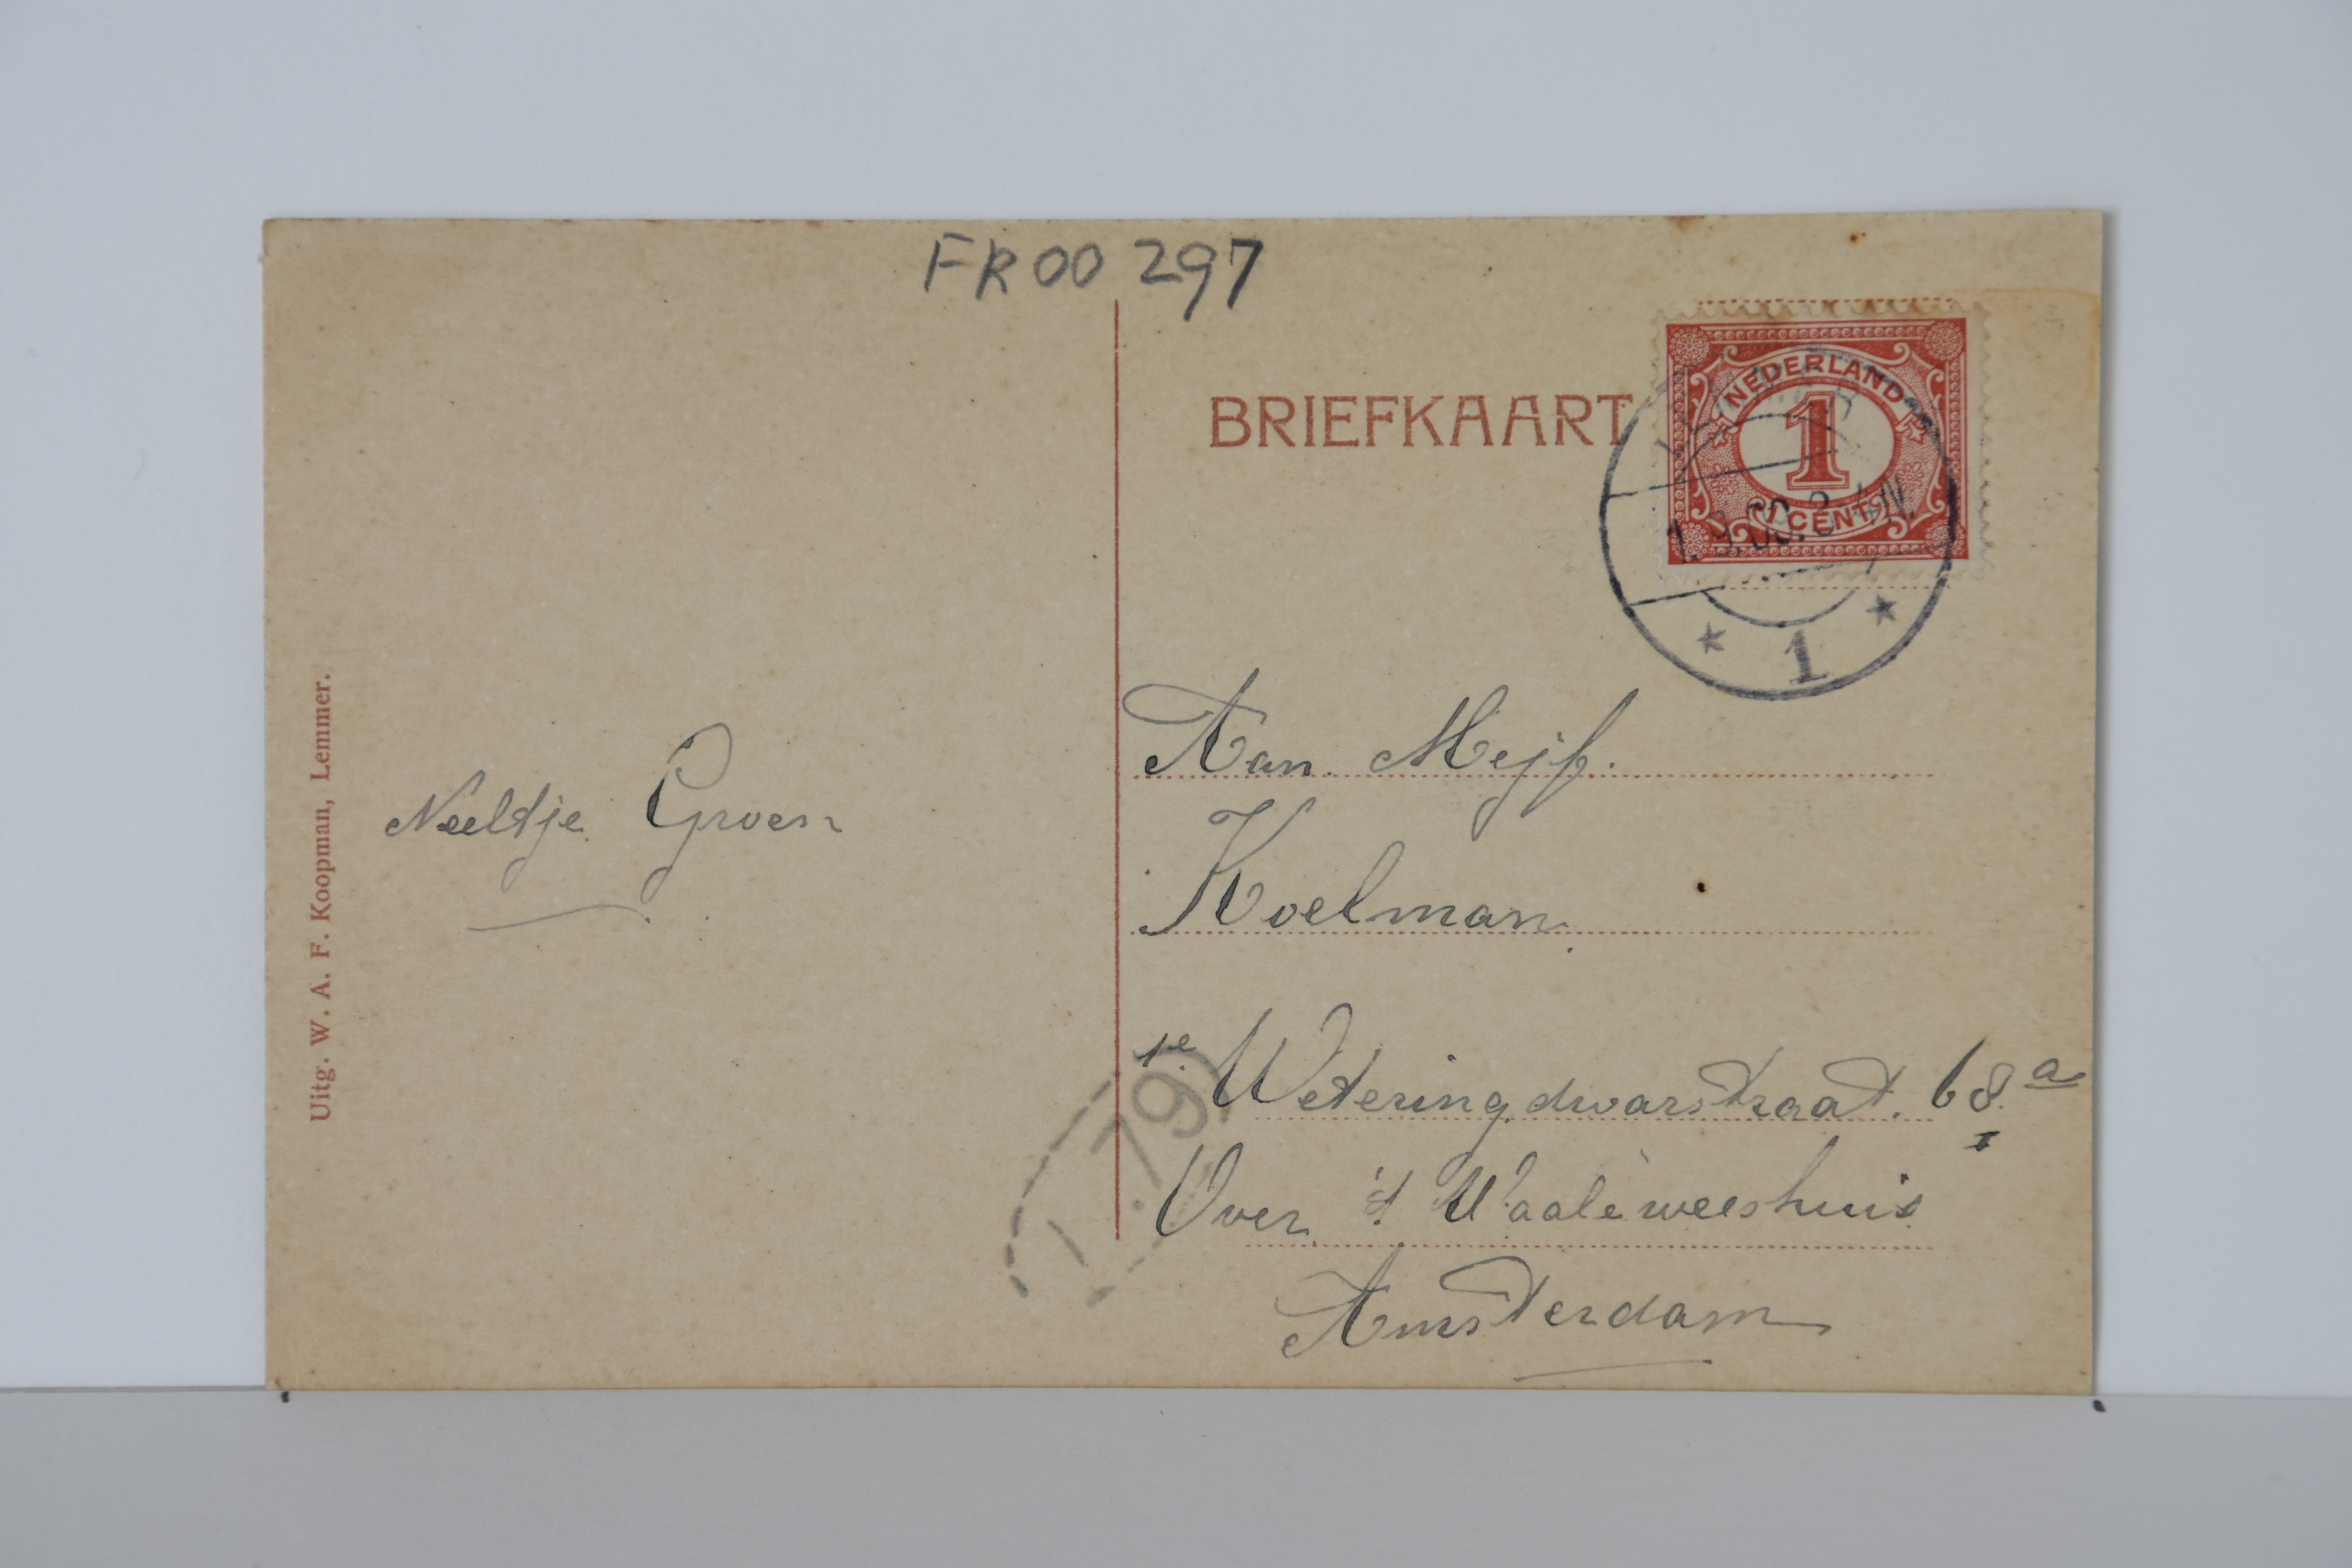 FR00 297
BRIEFKAART
NEDERLAND
1
1 CENT
1
Uitg. W. A. F. Koopman, Lemmer.
Neeltje Groen
Aan Mejf.
Koelman
1e Weteringdwarstraat. 68 a
I
Over 't Waale weeshuis
Amsterdam
79